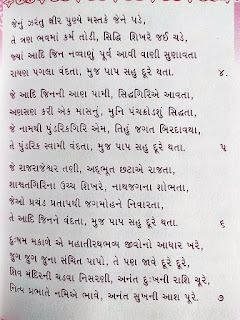 જેનું ઝરંતું ક્ષીર પુણ્યે મસ્તકે જેને પડે,
તે ત્રણ ભવમાં કર્મ તોડી, સિદ્ધિ શિખરે જઈ ચડે,
જ્યાં આદિ જિન નવ્વાણું પૂર્વ આવી વાણી સુણાવતા
રાયણ પગલા વંદતા, મુજ પાપ સહુ દૂરે થતા. ૪.
જે આદિ જિનની આણ પામી, સિદ્ધગિરિએ આવતા,
અણસણ કરી એક માસનું, મુનિ પંચક્રોડશું સિદ્ધતા,
જે નામથી પુંડરિકગિરિ એમ, તિહું જગત બિરદાવથા,
તે પુંડરિક સ્વામી વંદતા, મુજ પાપ સહુ દૂરે થતા. ૫
જે રાજરાજેશ્વર તણી, અદ્ભૂત છટાએ રાજતા,
શાશ્વતગિરિના ઉચ્ચ શિખરે, નાથજગના શોભતા,
જેઓ પ્રચંડ પ્રતાપથી જગમોહને નિવારતા,
તે આદિ જિનને વંદતા, મુજ પાપ સહુ દૂરે થતા. ૬
દુઃષમ મકાળે એ મહાતીરથભવ્ય જીવોનો આધાર ખરે,
જુગ જુગ જુના સંચિત પાપો, તે પણ જાવે દૂરે દૂરે,
શિવ મંદિરની ચડવા નિસરણી, અનંત દુઃખની રાશિ ચૂરે,
નિત્ય પ્રભાતે નમિએ ભાવે, અનંત સુખની આશ પૂરે. ૭